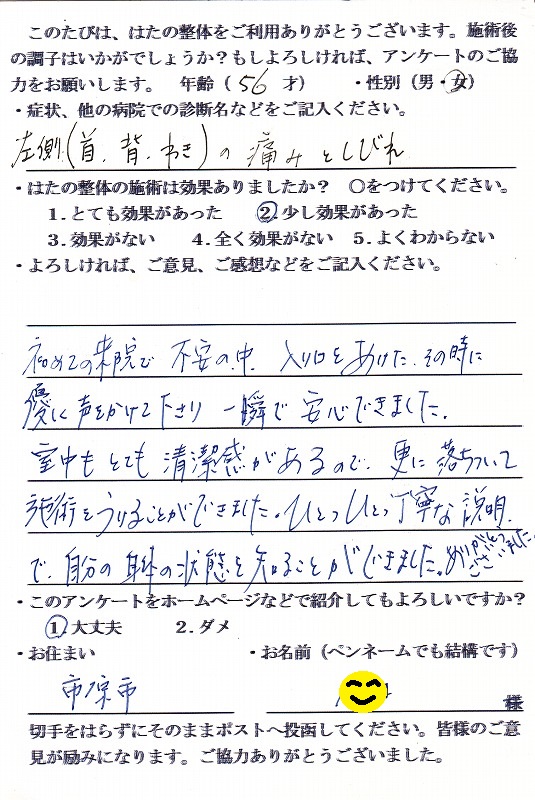 このたびは、はたの整体をご利用ありがとうございます。施術後
の調子はいかがでしょうか?もしよろしければ、アンケートのご協
力をお願いします。 年齢(56才) ・性別(男・女)
・症状、他の病院での診断名などをご記入ください。
左側(首、背、わき)の痛みとしびれ
・はたの整体の施術は効果ありましたか? ○をつけてください。
1.とても効果があった ②.少し効果があった
3.効果がない 4.全く効果がない 5.よくわからない
・よろしければ、ご意見、ご感想などをご記入ください。
初めての来院で不安の中、入り口をあけた、その時に
優しく声をかけて下さり一瞬で安心できました。
室中もとても清潔感があるので、更に落ちついて
施術をうけることができました。ひとつひとつ丁寧な説明
で、自分の身体の状態を知ることができました。ありがとうございました。
・このアンケートをホームページなどで紹介してもよろしいですか?
①.大丈夫 2.ダメ
・お住まい ・お名前(ペンネームでも結構です)
市原市 様
切手をはらずにそのままポストへ投函してください。皆様のご意
見が励みになります。ご協力ありがとうございました。